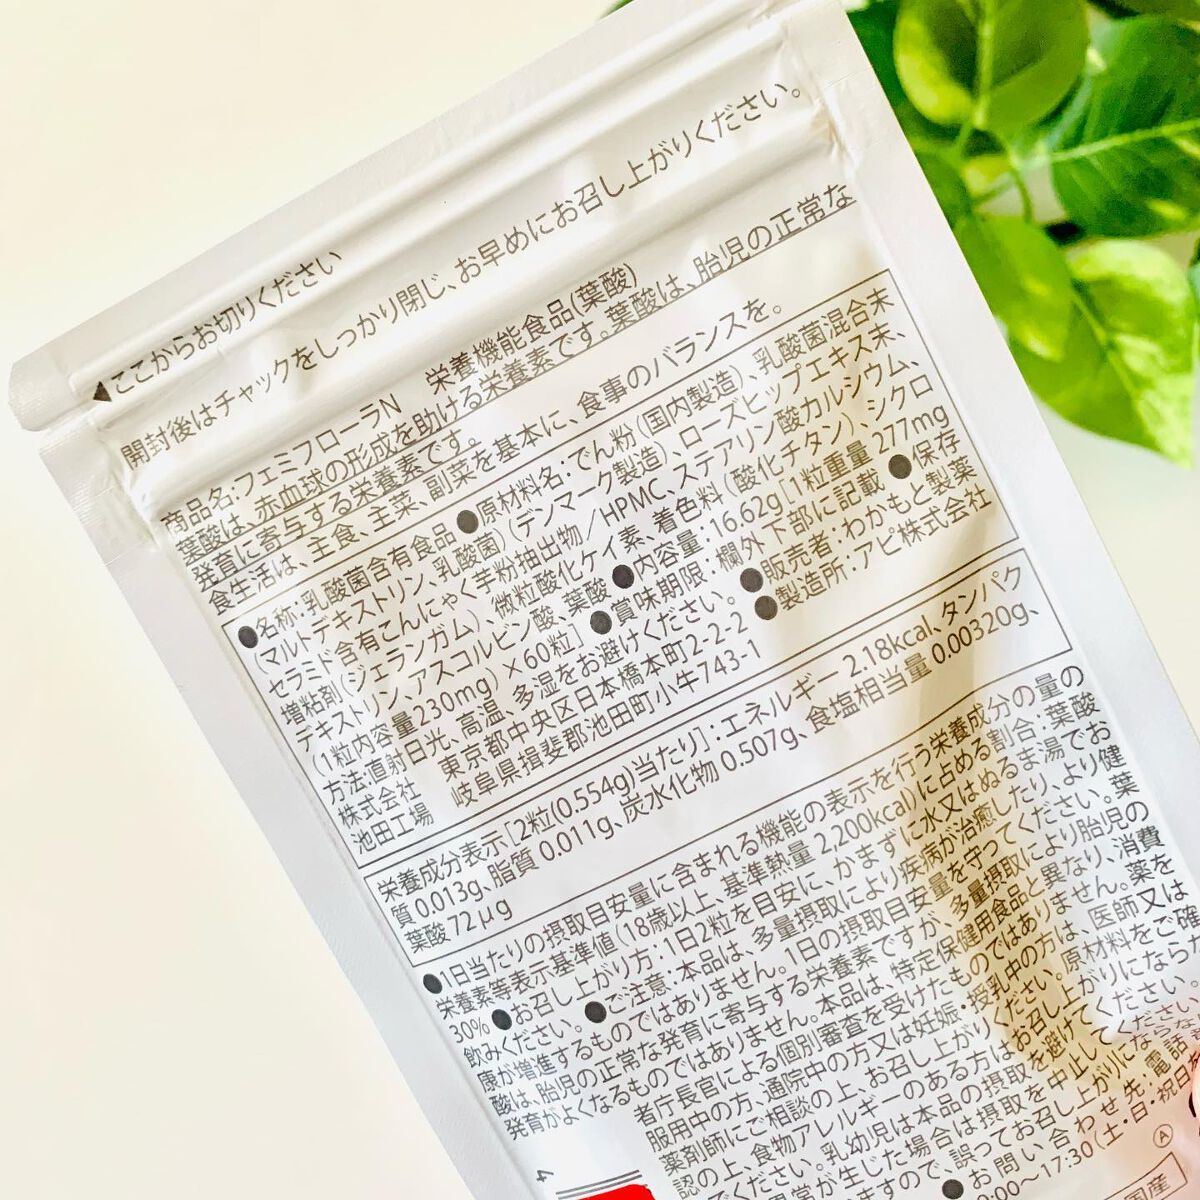 ◀ここからお切りください
開封後はチャックをしっかり閉じ、お早めにお召し上がりください。
商品名:フェミフローラN 栄養機能食品(葉酸)
葉酸は、赤血球の形成を助ける栄養素です。葉酸は、胎児の正常な
発育に寄与する栄養素です。
食生活は、主食、主菜、副菜を基本に、食事のバランスを。
●名称:乳酸菌含有食品 ●原材料名:でん粉(国内製造)、乳酸菌混合末
(マルトデキストリン、乳酸菌)(デンマーク製造)、ローズヒップエキス末、
セラミド含有こんにゃく芋粉抽出物/HPMC、ステアリン酸カルシウム、
増粘剤(ジェランガム)、微粒酸化ケイ素、着色料(酸化チタン)、シクロ
デキストリン、アスコルビン酸、葉酸 ●内容量:16.62g[1粒重量 277mg
(1粒内容量230mg)×60粒] ●賞味期限:欄外下部に記載 ●保存
方法:直射日光、高温、多湿をお避けください。 ●販売者:わかもと製薬
株式会社 東京都中央区日本橋本町2-2-2 ●製造所:アピ株式会社
池田工場 岐阜県揖斐郡池田町小牛743-1
栄養成分表示[2粒(0.554g)当たり]:エネルギー 2.18kcal、タンパク
質 0.013g、脂質 0.011g、炭水化物 0.507g、食塩相当量 0.00320g、
葉酸 72μg
●1日当たりの摂取目安量に含まれる機能の表示を行う栄養成分の量の
栄養素等表示基準値(18歳以上、基準熱量 2,200kcal)に占める割合:葉酸
30% ●お召し上がり方:1日2粒を目安に、かまずに水又はぬるま湯でお
飲みください。 ●ご注意:本品は、多量摂取により疾病が治癒したり、より健
康が増進するものではありません。1日の摂取目安量を守ってください。葉
酸は、胎児の正常な発育に寄与する栄養素ですが、多量摂取により胎児の
発育がよくなるものではありません。本品は、特定保健用食品と異なり、消費
者庁長官による個別審査を受けたものではありません。薬を
服用中の方、通院中の方又は妊娠・授乳中の方は、医師又は
薬剤師にご相談の上、お召し上がりください。原材料をご確
認の上、食物アレルギーのある方はお召し上がりにならな
いでください。乳幼児は本品の摂取を避けてください。
場合は摂取を中止してください
ますので、誤ってお召し上がりにならな
●お問い合わせ先:電話
:00~17:30(土・日・祝日を
Ⓐ
4
国産